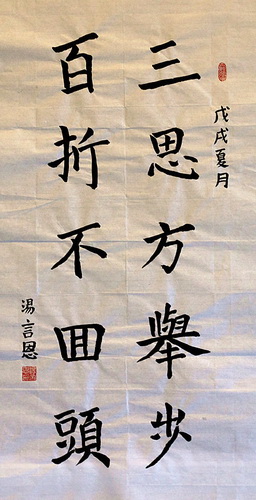 戊戌夏月
三思方舉步
百折不回頭
湯言恩